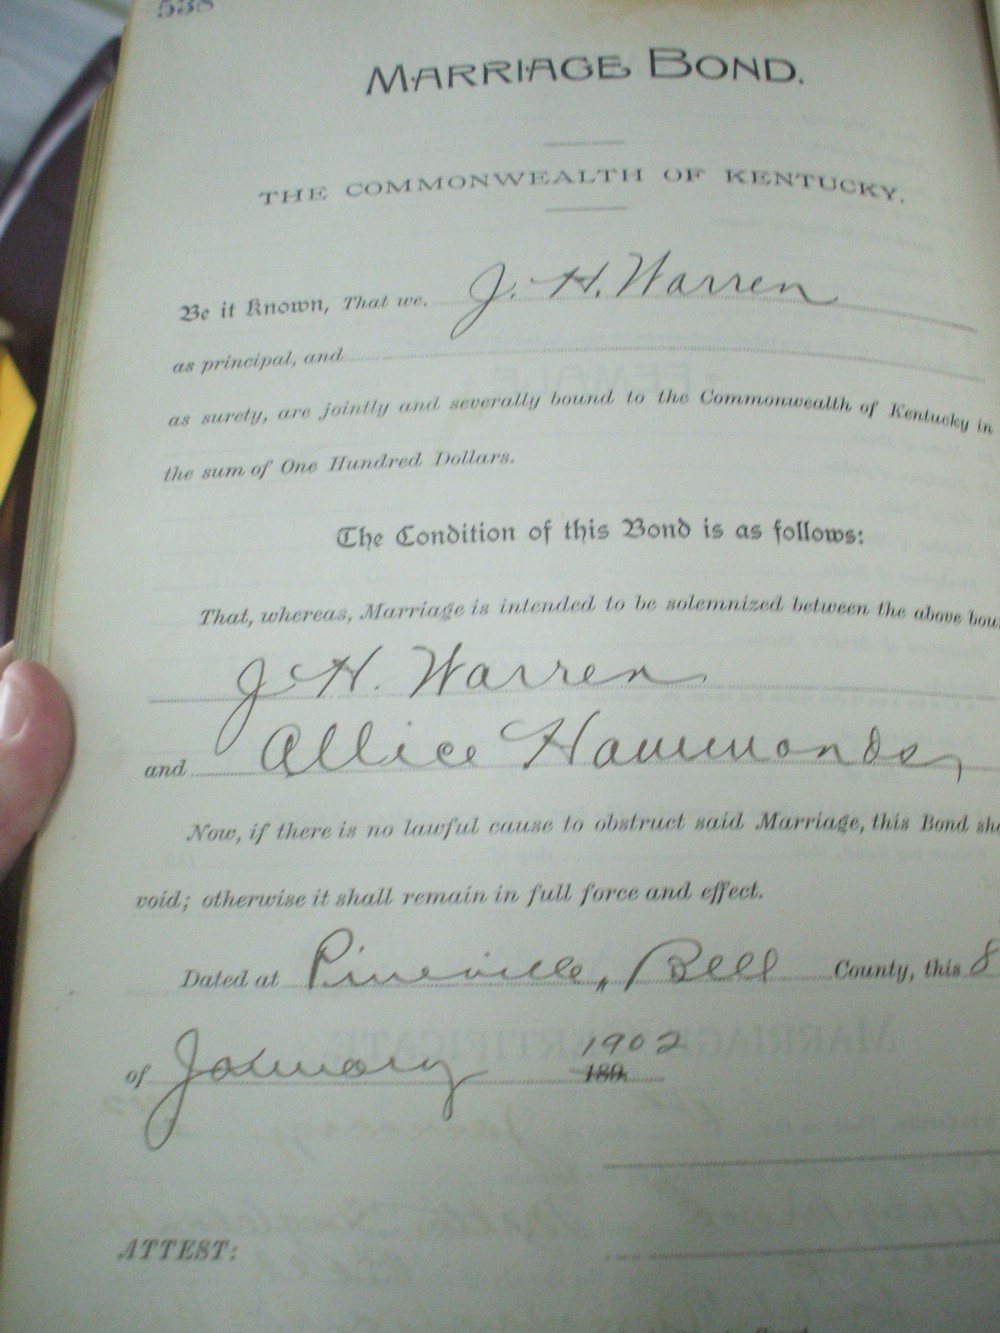 538
MARRIAGE BOND.
THE COMMONWEALTH OF KENTUCKY.
Be it Known, That we, J. H. Warren
as principal, and
as surety, are jointly and severally bound to the Commonwealth of Kentucky in
the sum of One Hundred Dollars.
The Condition of this Bond is as follows:
That, whereas, Marriage is intended to be solemnized between the above bou
J. H. Warren
and Allice Hammonds,
Now, if there is no lawful cause to obstruct said Marriage, this Bond sh
void; otherwise it shall remain in full force and effect.
Dated at Pineville, Bell County, this 8
of January 1902 189
ATTEST: